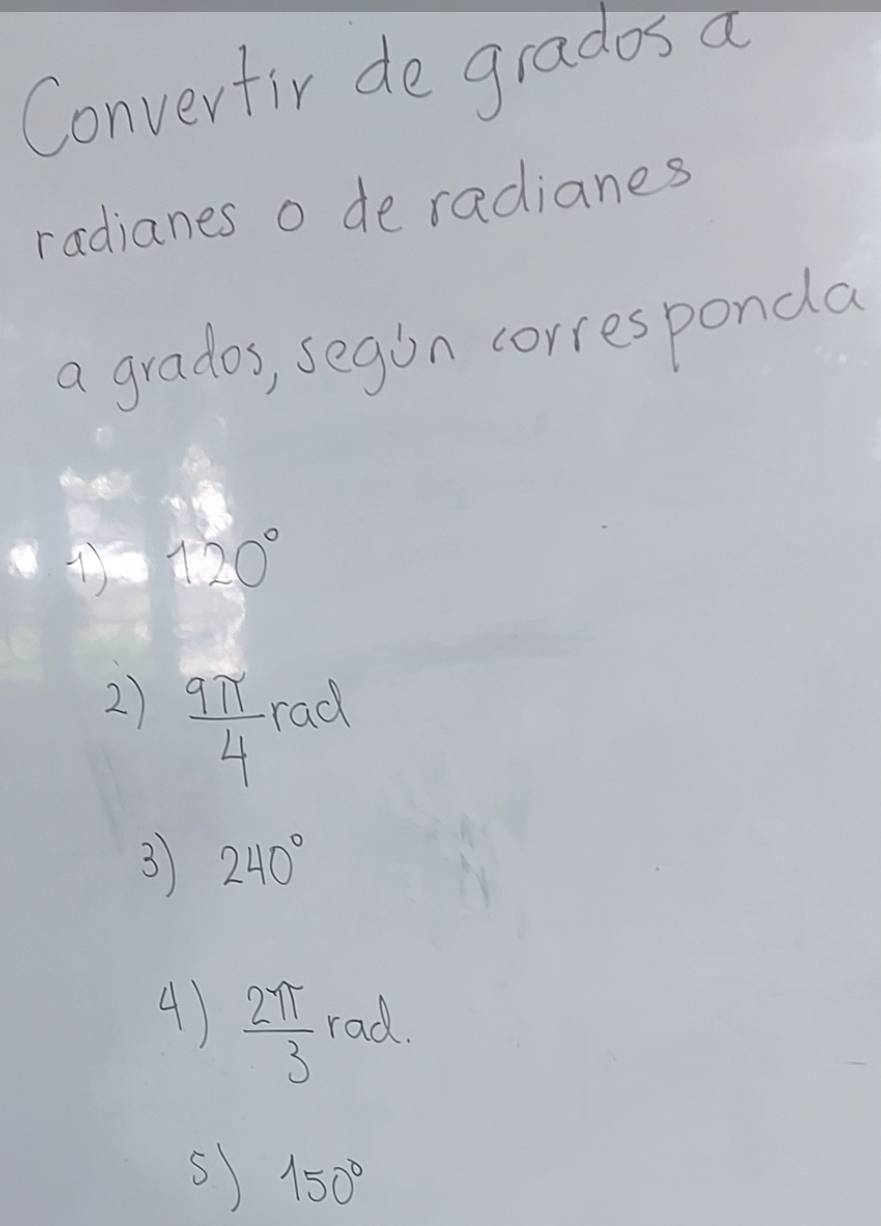 Convertir de grados a
radianes o de radianes
a grados, según corresponda
1) 120°
2) 9π/4 rad
3) 240°
4) 2π/3 rad.
5) 150°